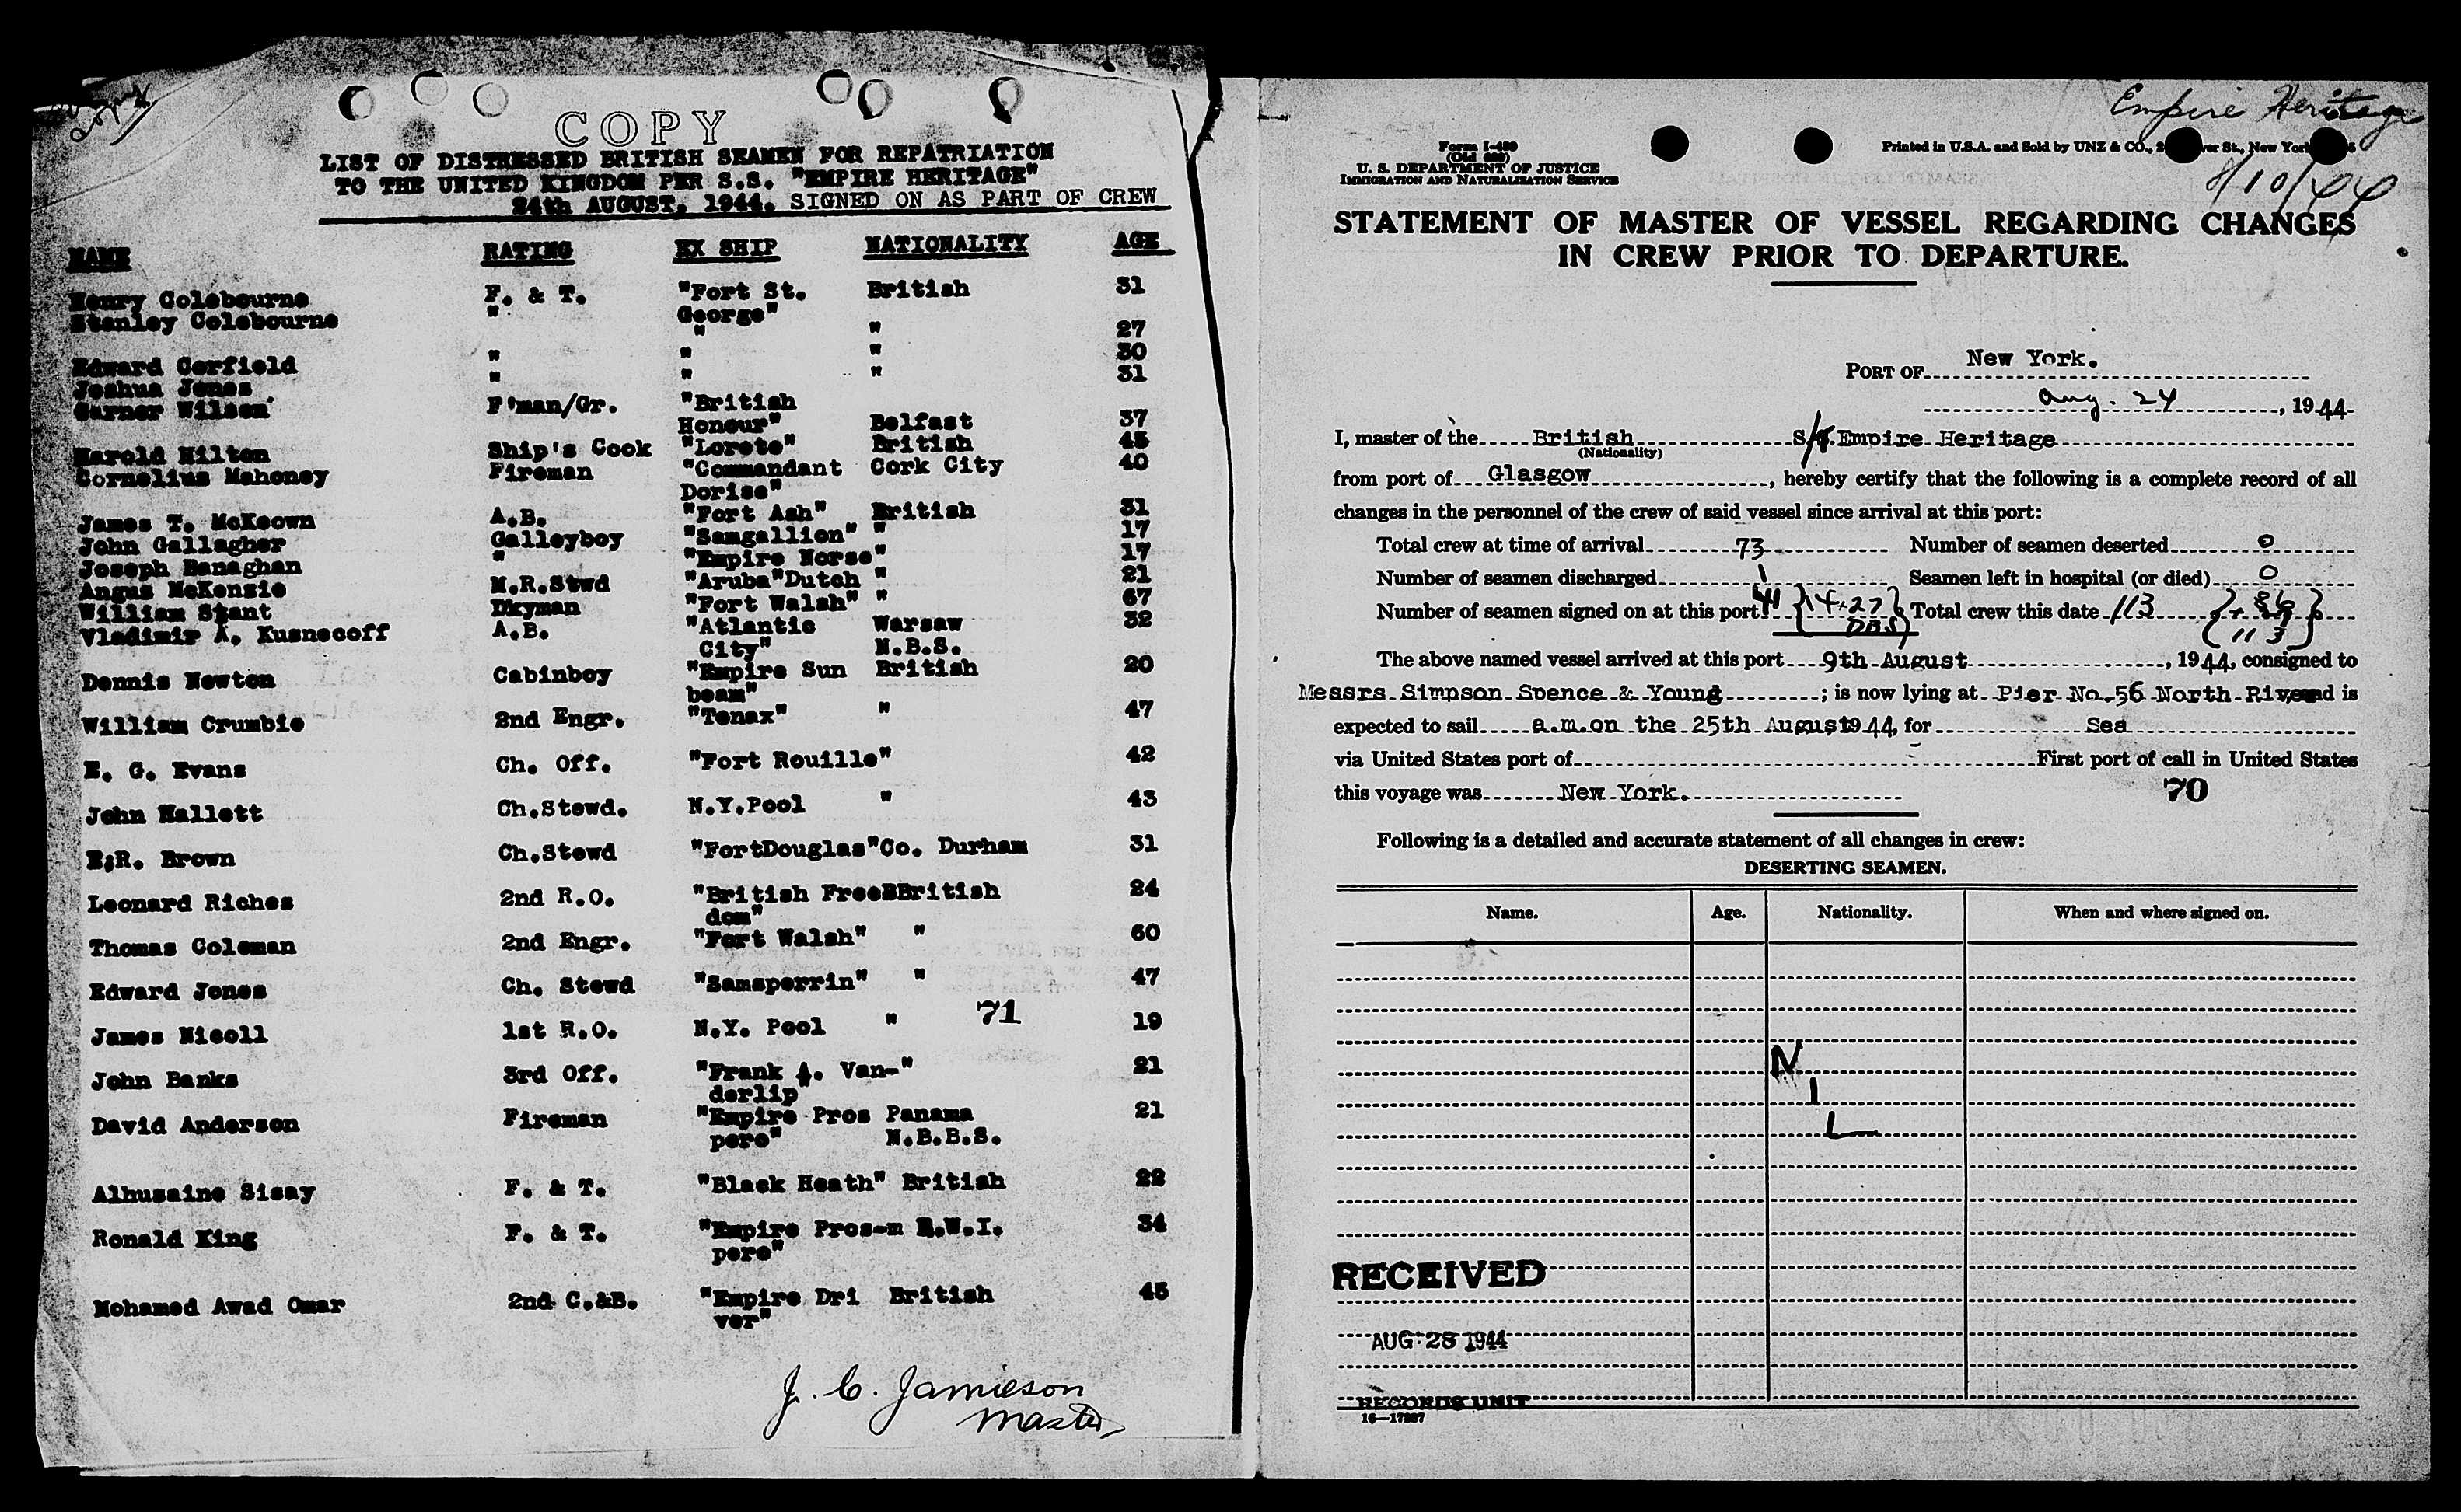 COPY
LIST OF DISTRESSED BRITISH SEAMEN FOR REPATRIATION
TO THE UNITED KINGDOM PER S.S. "EMPIRE HERITAGE"
24th AUGUST, 1944. SIGNED ON AS PART OF CREW
NAME RATING EX SHIP NATIONALITY AGE
Henry Colebourne F. & T. "Fort St. British 31
Stanley Colebourne " George"
" " 27
Edward Corfield " " " 30
Joshua Jones " " " 31
Garner Wilson F'man/Gr. "British
Honour" Belfast 37
Harold Hilton Ship's Cook "Loreto" British 45
Cornelius Mahoney Fireman "Commandant Cork City 40
Dorise"
James T. McKeown A.B. "Fort Ash" British 31
John Gallagher Galleyboy "Samgallion" " 17
Joseph Banaghan " "Empire Norse" 17
Angus McKenzie M.R.Stwd "Aruba"Dutch " 21
William Stant Dkyman "Fort Walsh" " 67
Vladimir A. Kusnecoff A.B. "Atlantic Warsaw 32
City" N.B.S.
Dennis Newton Cabinboy "Empire Sun British 20
beam"
William Crumbie 2nd Engr. "Tenax" " 47
E. G. Evans Ch. Off. "Fort Rouille" 42
John Hallett Ch.Stewd. N.Y.Pool " 43
E.R. Brown Ch.Stewd "FortDouglas"Co. Durham 31
Leonard Riches 2nd R.O. "British FreeBBritish 24
dom"
Thomas Coleman 2nd Engr. "Fort Walsh" " 60
Edward Jones Ch. Stewd "Samsperrin" " 47
71
James Nicoll 1st R.O. N.Y. Pool " 19
John Banks 3rd Off. "Frank A. Van-" 21
derlip
David Anderson Fireman "Empire Pros Panama 21
pero" N.B.B.S.
Alhusaine Sisay F. & T. "Black Heath" British 22
Ronald King F. & T. "Empire Pros-m B.W.I. 34
pero"
Mohamed Awad Omar 2nd C.&B. "Empire Dri British 45
ver"
J. C. Jamieson
Master
Empire Heritage
8/10/44
Form I-489
(Old 689)
U. S. DEPARTMENT OF JUSTICE
IMMIGRATION AND NATURALIZATION SERVICE
Printed in U.S.A. and Sold by UNZ & CO., St., New York
STATEMENT OF MASTER OF VESSEL REGARDING CHANGES
IN CREW PRIOR TO DEPARTURE.
PORT OF New York.
Aug. 24, 1944
I, master of the British S/S. Empire Heritage
(Nationality)
from port of Glasgow, hereby certify that the following is a complete record of all
changes in the personnel of the crew of said vessel since arrival at this port:
Total crew at time of arrival 73 Number of seamen deserted 0
Number of seamen discharged 1 Seamen left in hospital (or died) 0
Number of seamen signed on at this port 41 {14+27 DBS} Total crew this date 113 {+ 86 113}
The above named vessel arrived at this port 9th August, 1944, consigned to
Messrs Simpson Spence & Young; is now lying at Pier No.56 North River and is
expected to sail a.m. on the 25th August 1944, for Sea
via United States port of - First port of call in United States
this voyage was New York.
70
Following is a detailed and accurate statement of all changes in crew:
DESERTING SEAMEN.
Name. Age. Nationality. When and where signed on.
N
I
L
RECEIVED
AUG 28 1944
RECORDS UNIT
16—17287